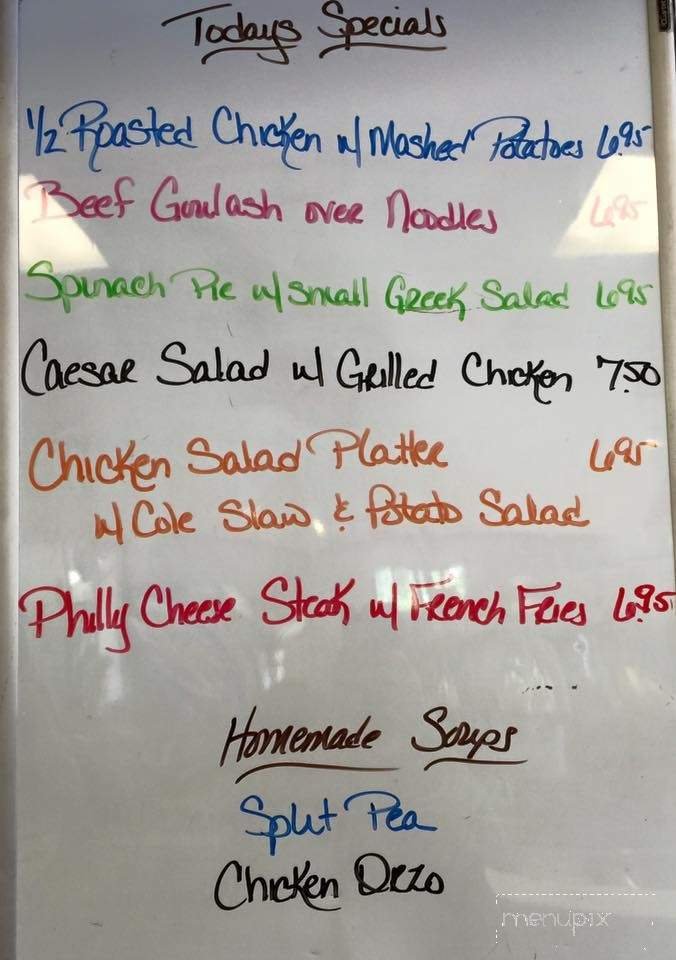 Todays Specials
1/2 Roasted Chicken w/ Mashed Potatoes 6.95
Beef Goulash over Noodles 6.95
Spinach Pie w/ small Greek Salad 6.95
Caesar Salad w/ Grilled Chicken 7.50
Chicken Salad Platter 6.95
w/ Cole Slaw & Potato Salad
Philly Cheese Steak w/ French Fries 6.95
Homemade Soups
Split Pea
Chicken Orzo
menupix